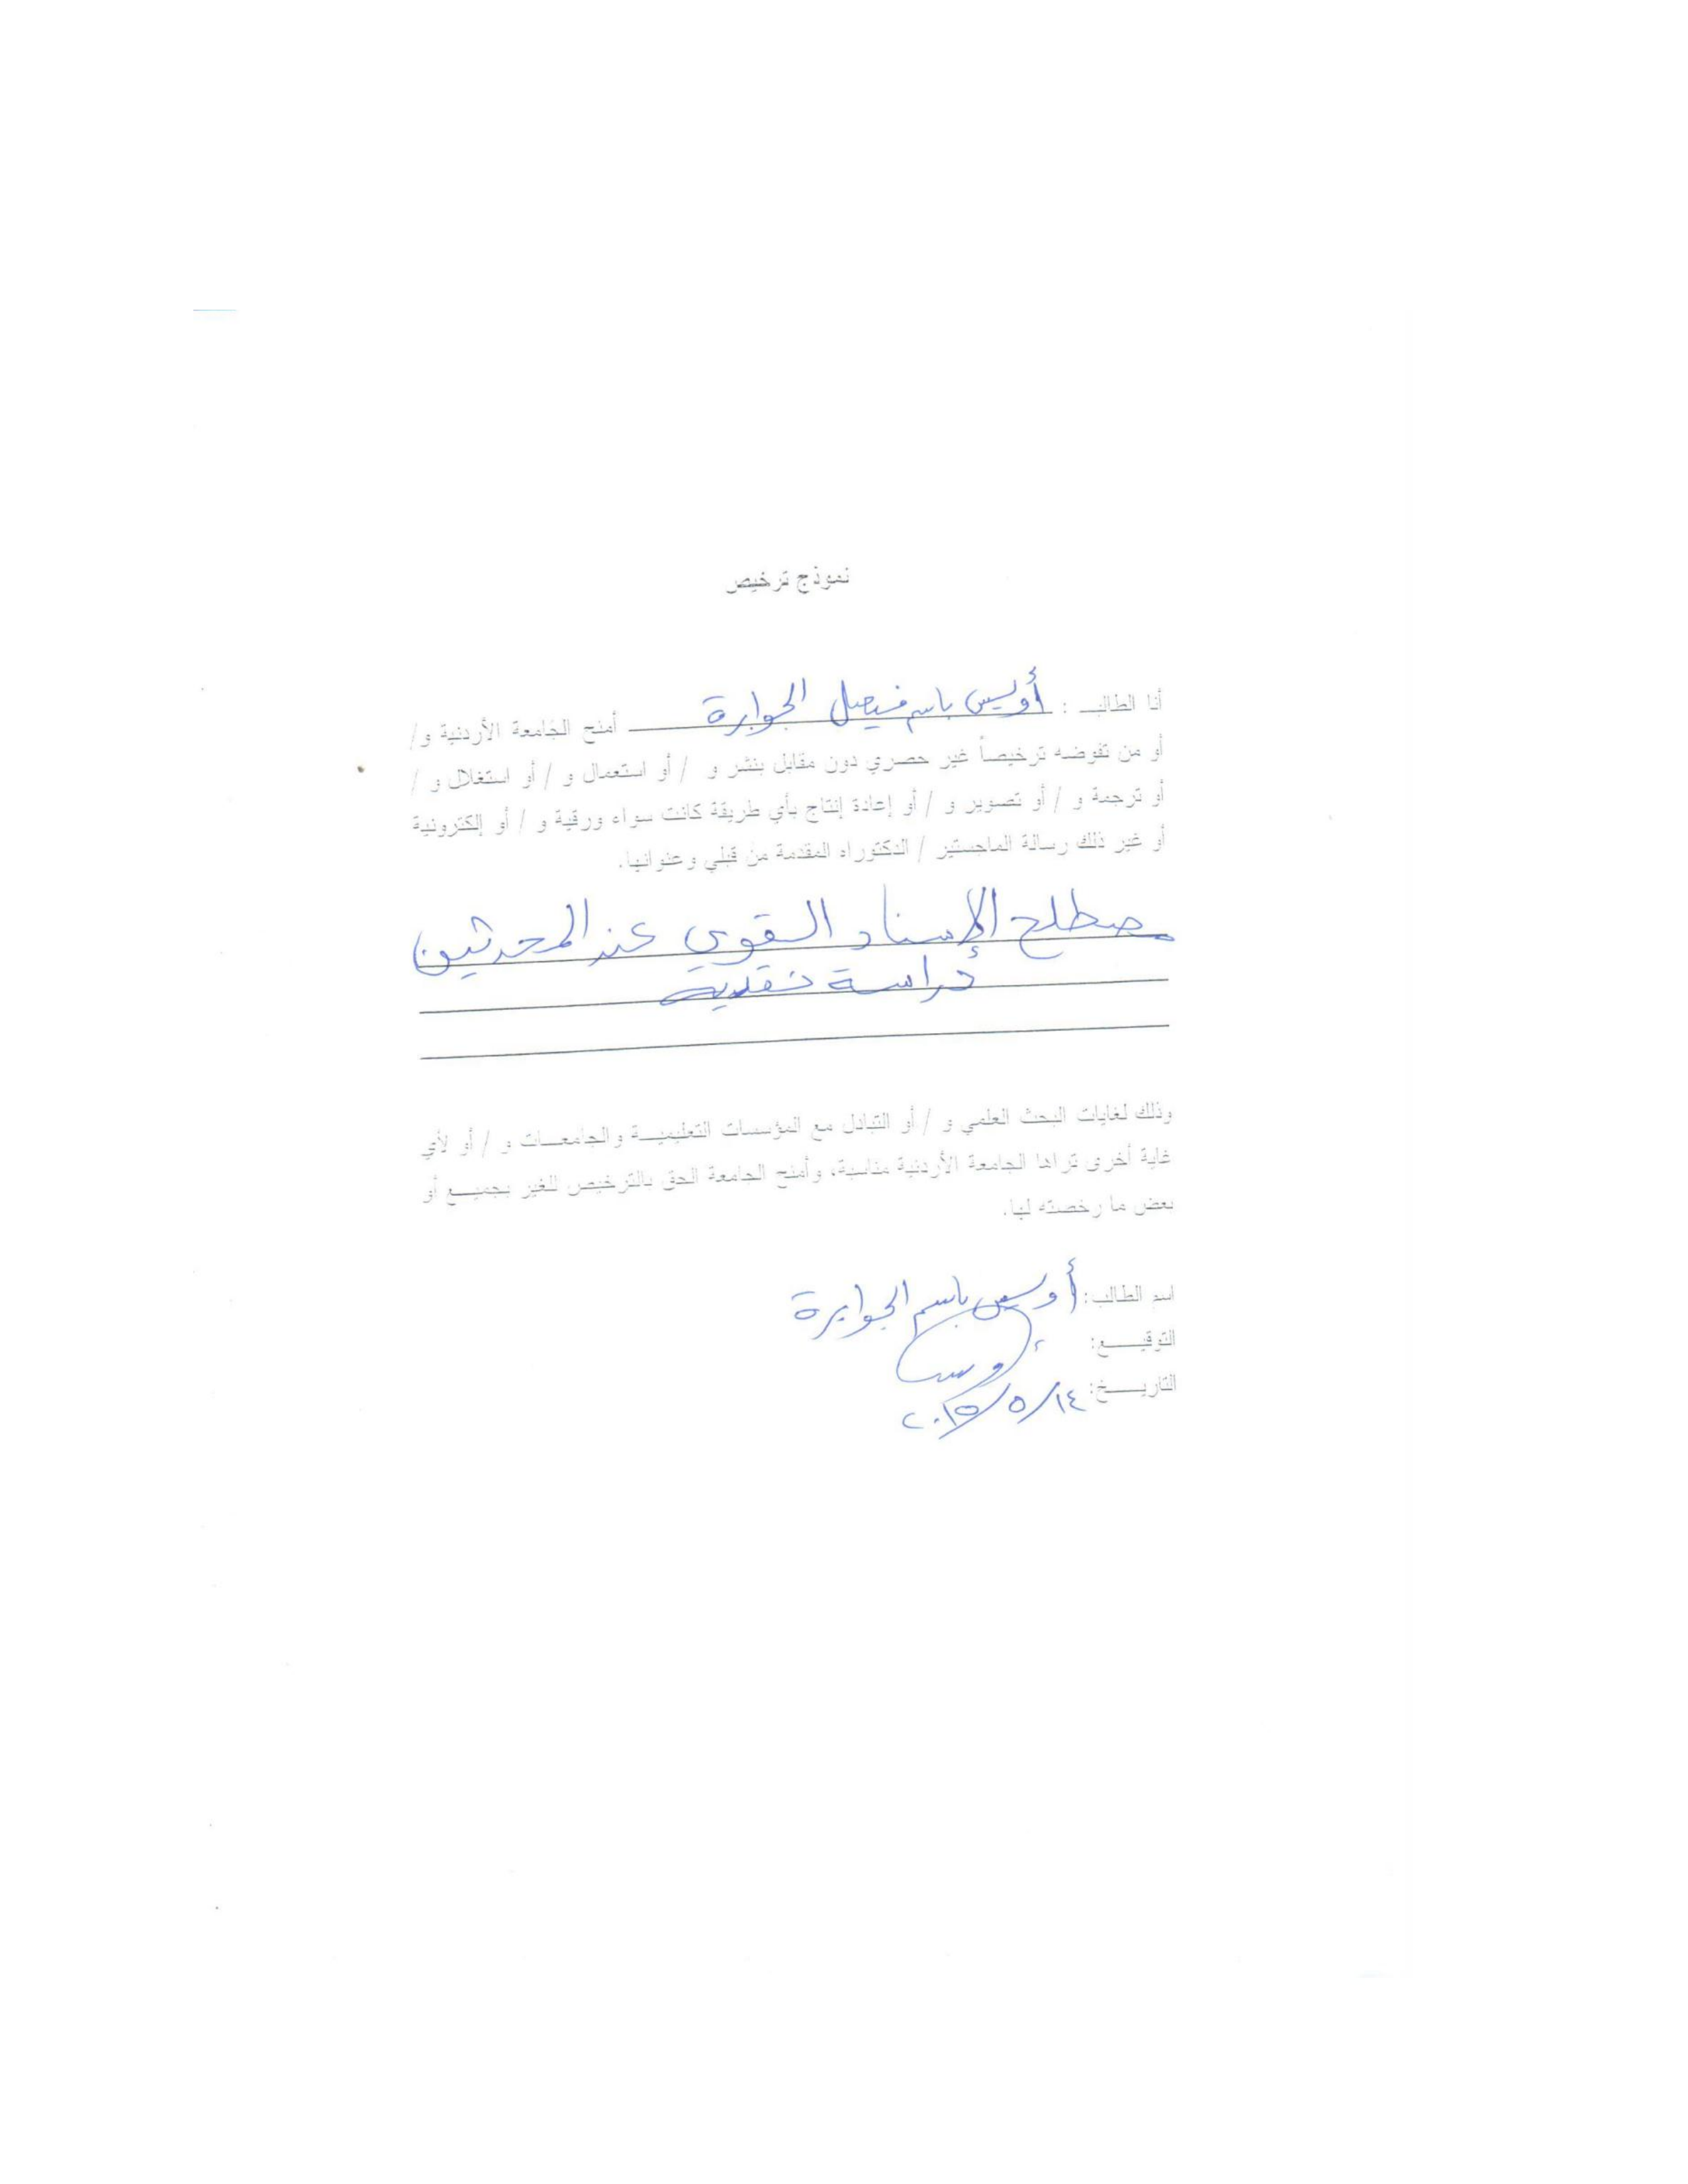 نموذج ترخيص
أنا الطالب : أويس باسم فيصل الجوابرة أمنح الجامعة الأردنية و/
أو من تفوضه ترخيصاً غير حصري دون مقابل بنشر و / أو استعمال و / أو استغلال و /
أو ترجمة و / أو تصوير و / أو إعادة إنتاج بأي طريقة كانت سواء ورقية و / أو إلكترونية
أو غير ذلك رسالة الماجستير / الدكتوراه المقدمة من قبلي وعنوانها.
مصطلح الإسناد القوي عند المحدثين
دراسة نقدية
وذلك لغايات البحث العلمي و / أو التبادل مع المؤسسات التعليمية والجامعات و / أو لأي
غاية أخرى تراها الجامعة الأردنية مناسبة، وأمنح الجامعة الحق بالترخيص للغير بجميع أو
بعض ما رخصته لها.
اسم الطالب: أويس باسم الجوابرة
التوقيع:
التاريخ: ١٤/٥/٢٠١٥